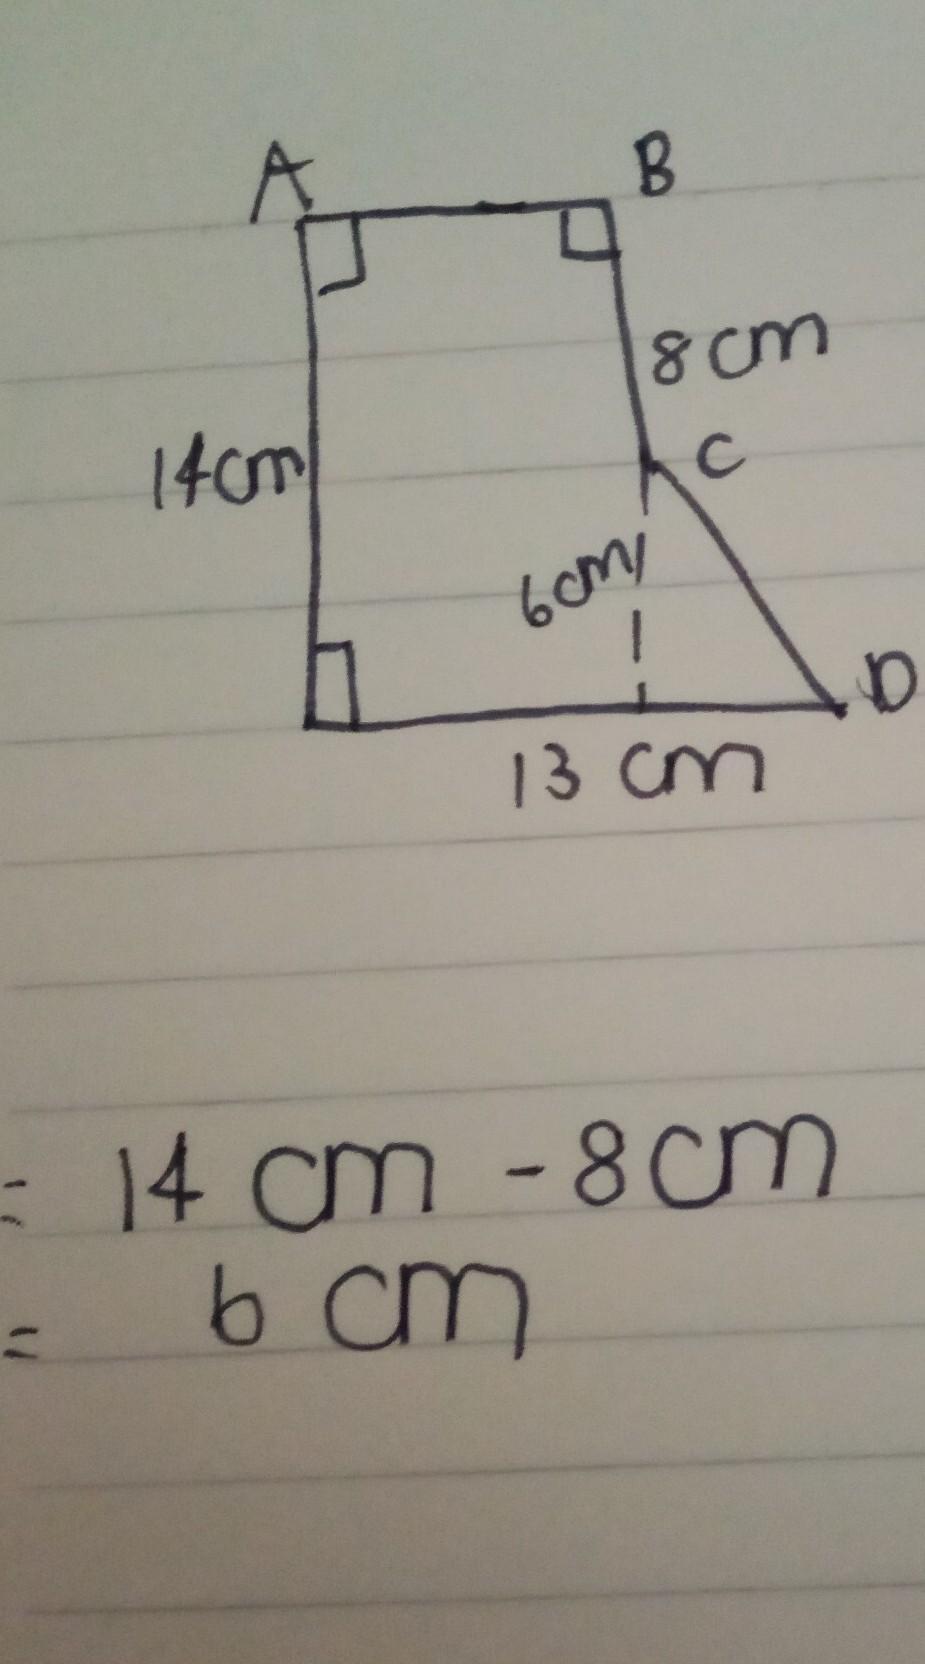 A
B
8cm
14cm
C
6cm
D
13 cm
= 14 cm - 8cm
= 6 cm